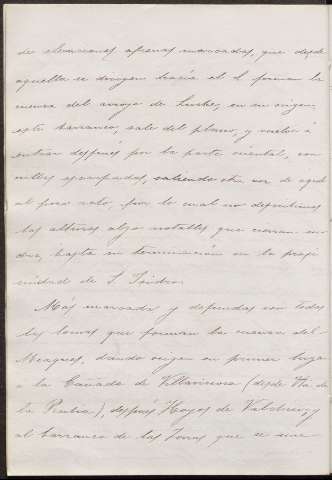 de elevaciones apenas marcadas, que desde
aquella se dirigen hacia el S. forman la
cuenca del arroyo de Luche, en su origen,
este barranco, sale del plano, y vuelve á
entrar después por la parte oriental, con
escarpadas, saliendo otra vez de aquel
al poco rato, por lo cual no
las alturas algo notables que cierran su
hasta su terminación en la proxi
midad de S. Isidro.
Más marcada y definidas son todas
las lomas que forman la cuenca del
Meaques, dando origen en primer lugar
a la Cañada de Villaviciosa (desde
la Rubia), después Hoyos de Valchico, y
al barranco de las Zorras que se une